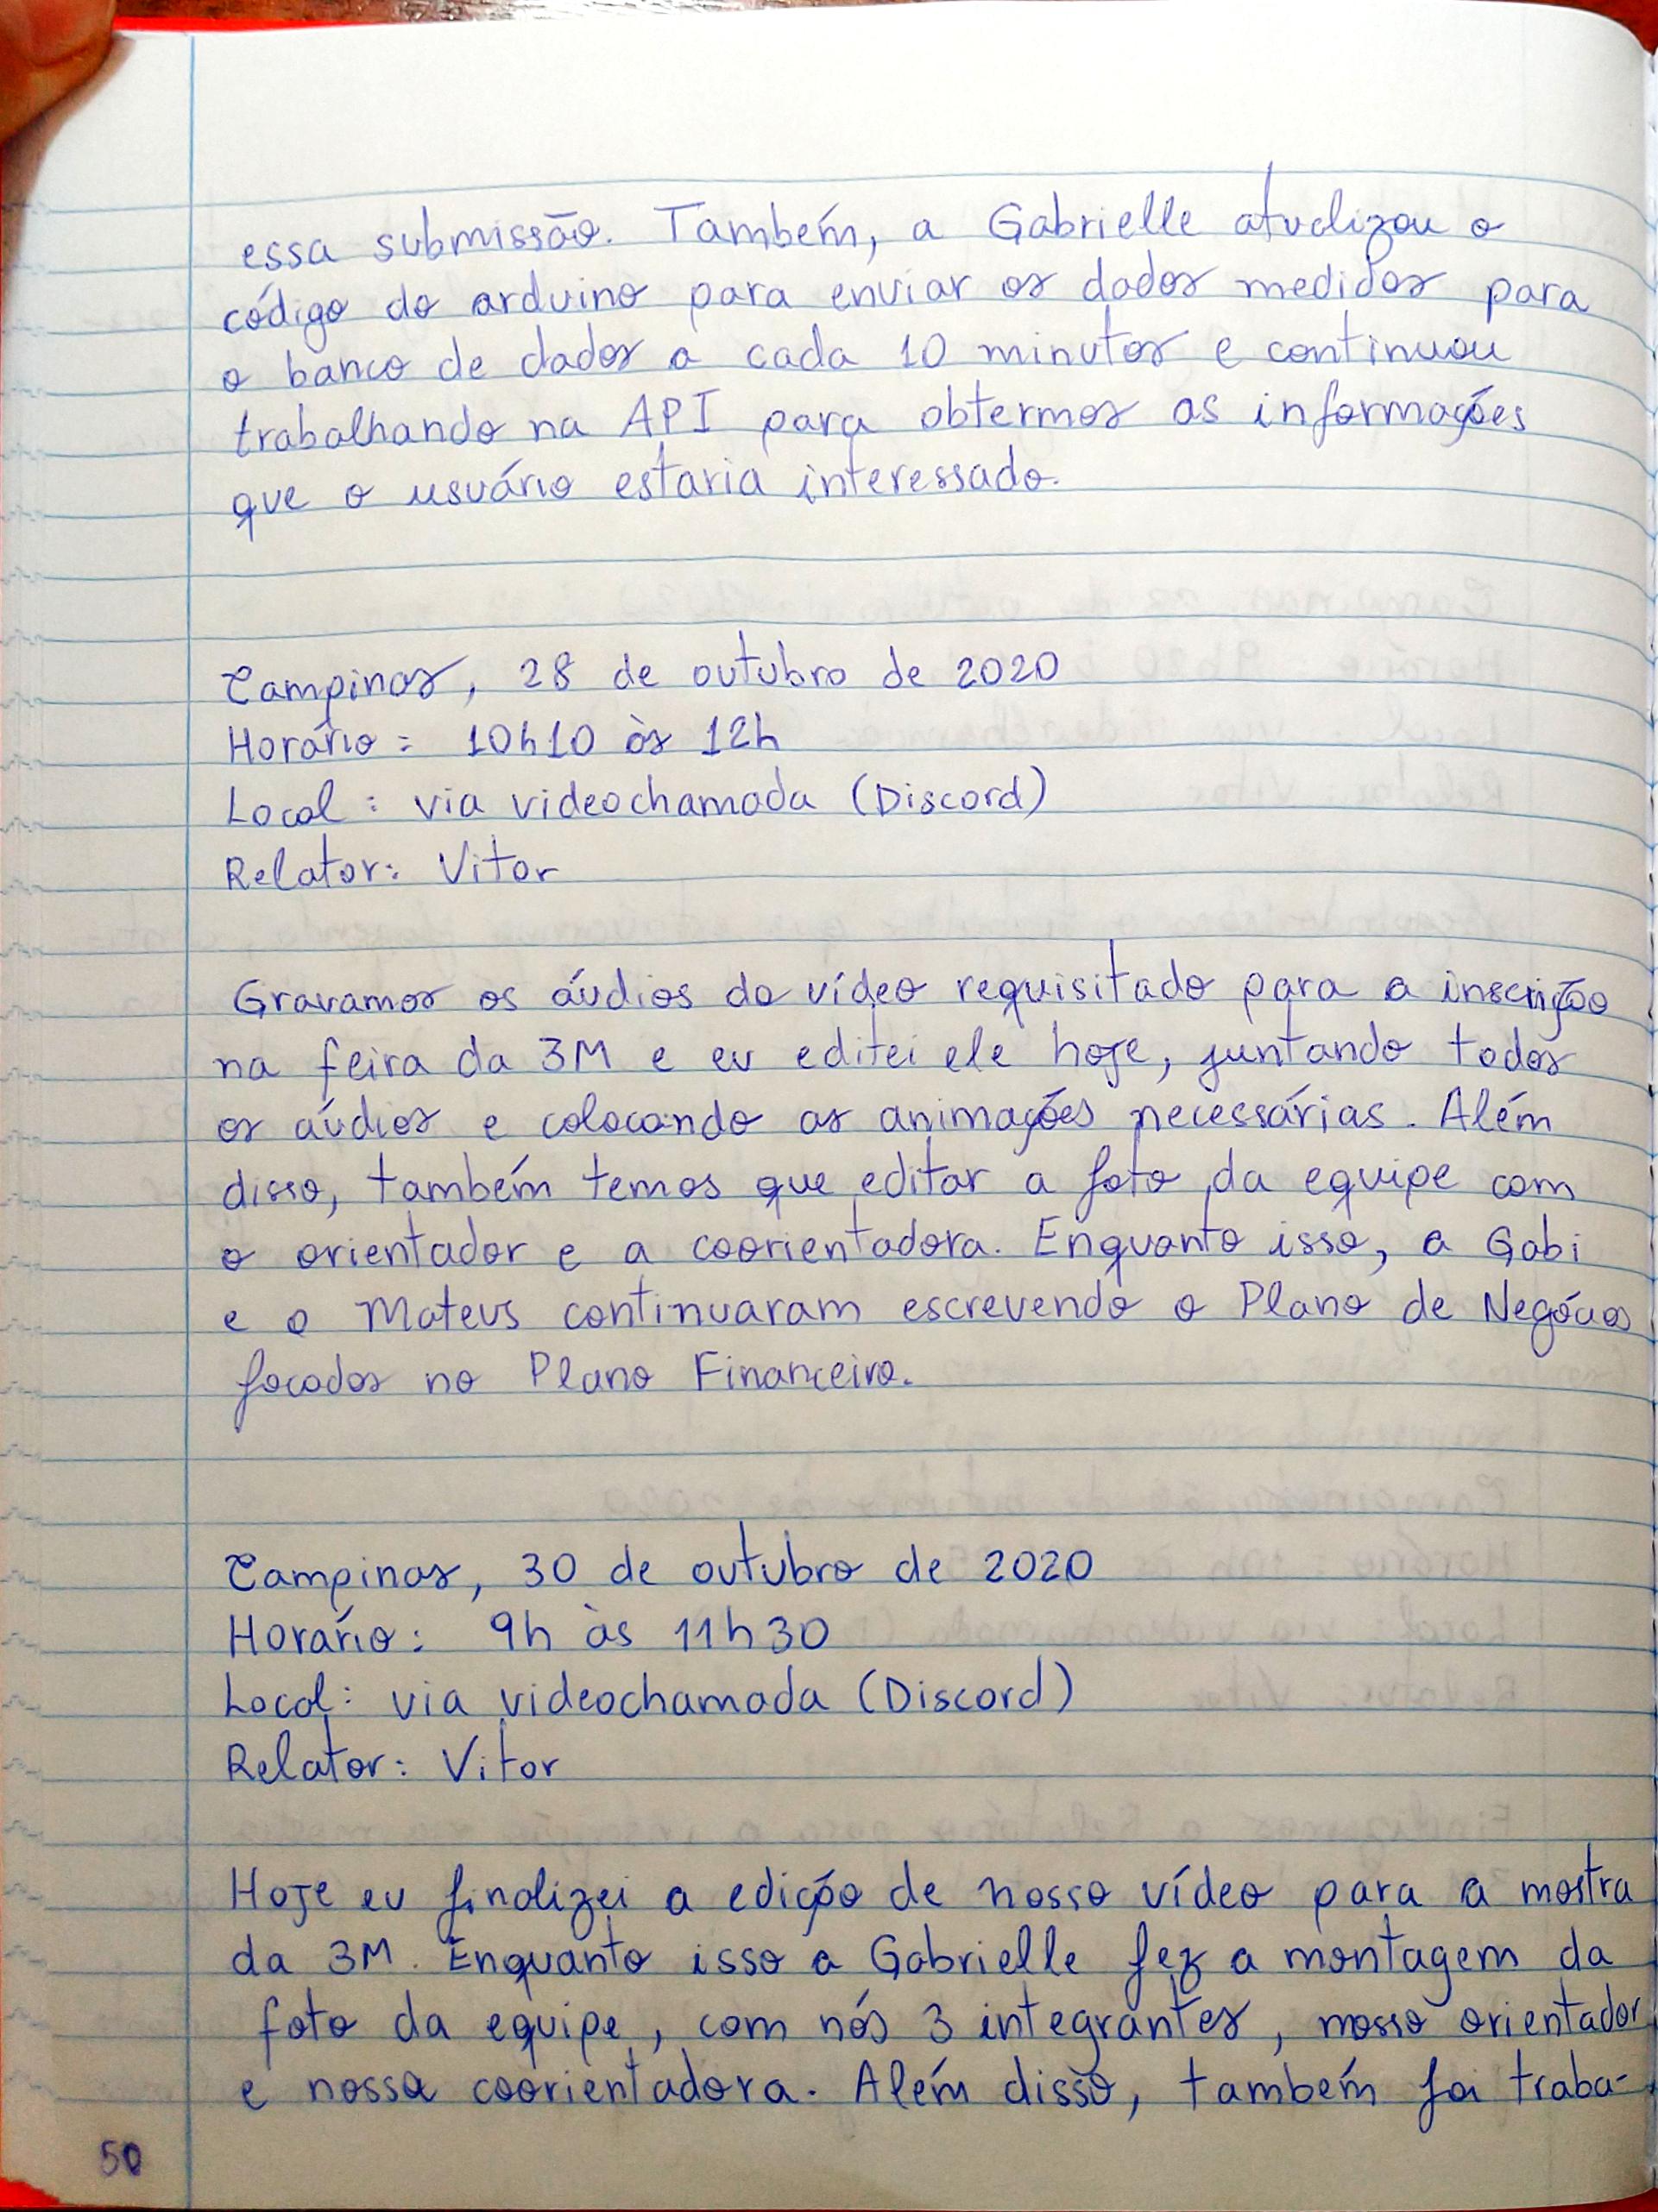 essa submissão. Também, a Gabrielle atualizou o
código do arduino para enviar os dados medidos para
o banco de dados a cada 10 minutos e continuou
trabalhando na API para obtermos as informações
que o usuário estaria interessado.
Campinas, 28 de outubro de 2020
Horário: 10h10 às 12h
Local: via videochamada (Discord)
Relator: Vitor
Gravamos os áudios do vídeo requisitado para a inscrição
na feira da 3M e eu editei ele hoje, juntando todos
os áudios e colocando as animações necessárias. Além
disso, também temos que editar a foto da equipe com
o orientador e a coorientadora. Enquanto isso, a Gabi
e o Mateus continuaram escrevendo o Plano de Negócios
focados no Plano Financeiro.
Campinas, 30 de outubro de 2020
Horário: 9h às 11h30
Local: via videochamada (Discord)
Relator: Vitor
Hoje eu finalizei a edição de nosso vídeo para a mostra
da 3M. Enquanto isso a Gabrielle fez a montagem da
foto da equipe, com nós 3 integrantes, nosso orientador
e nossa coorientadora. Além disso, também foi traba-
50